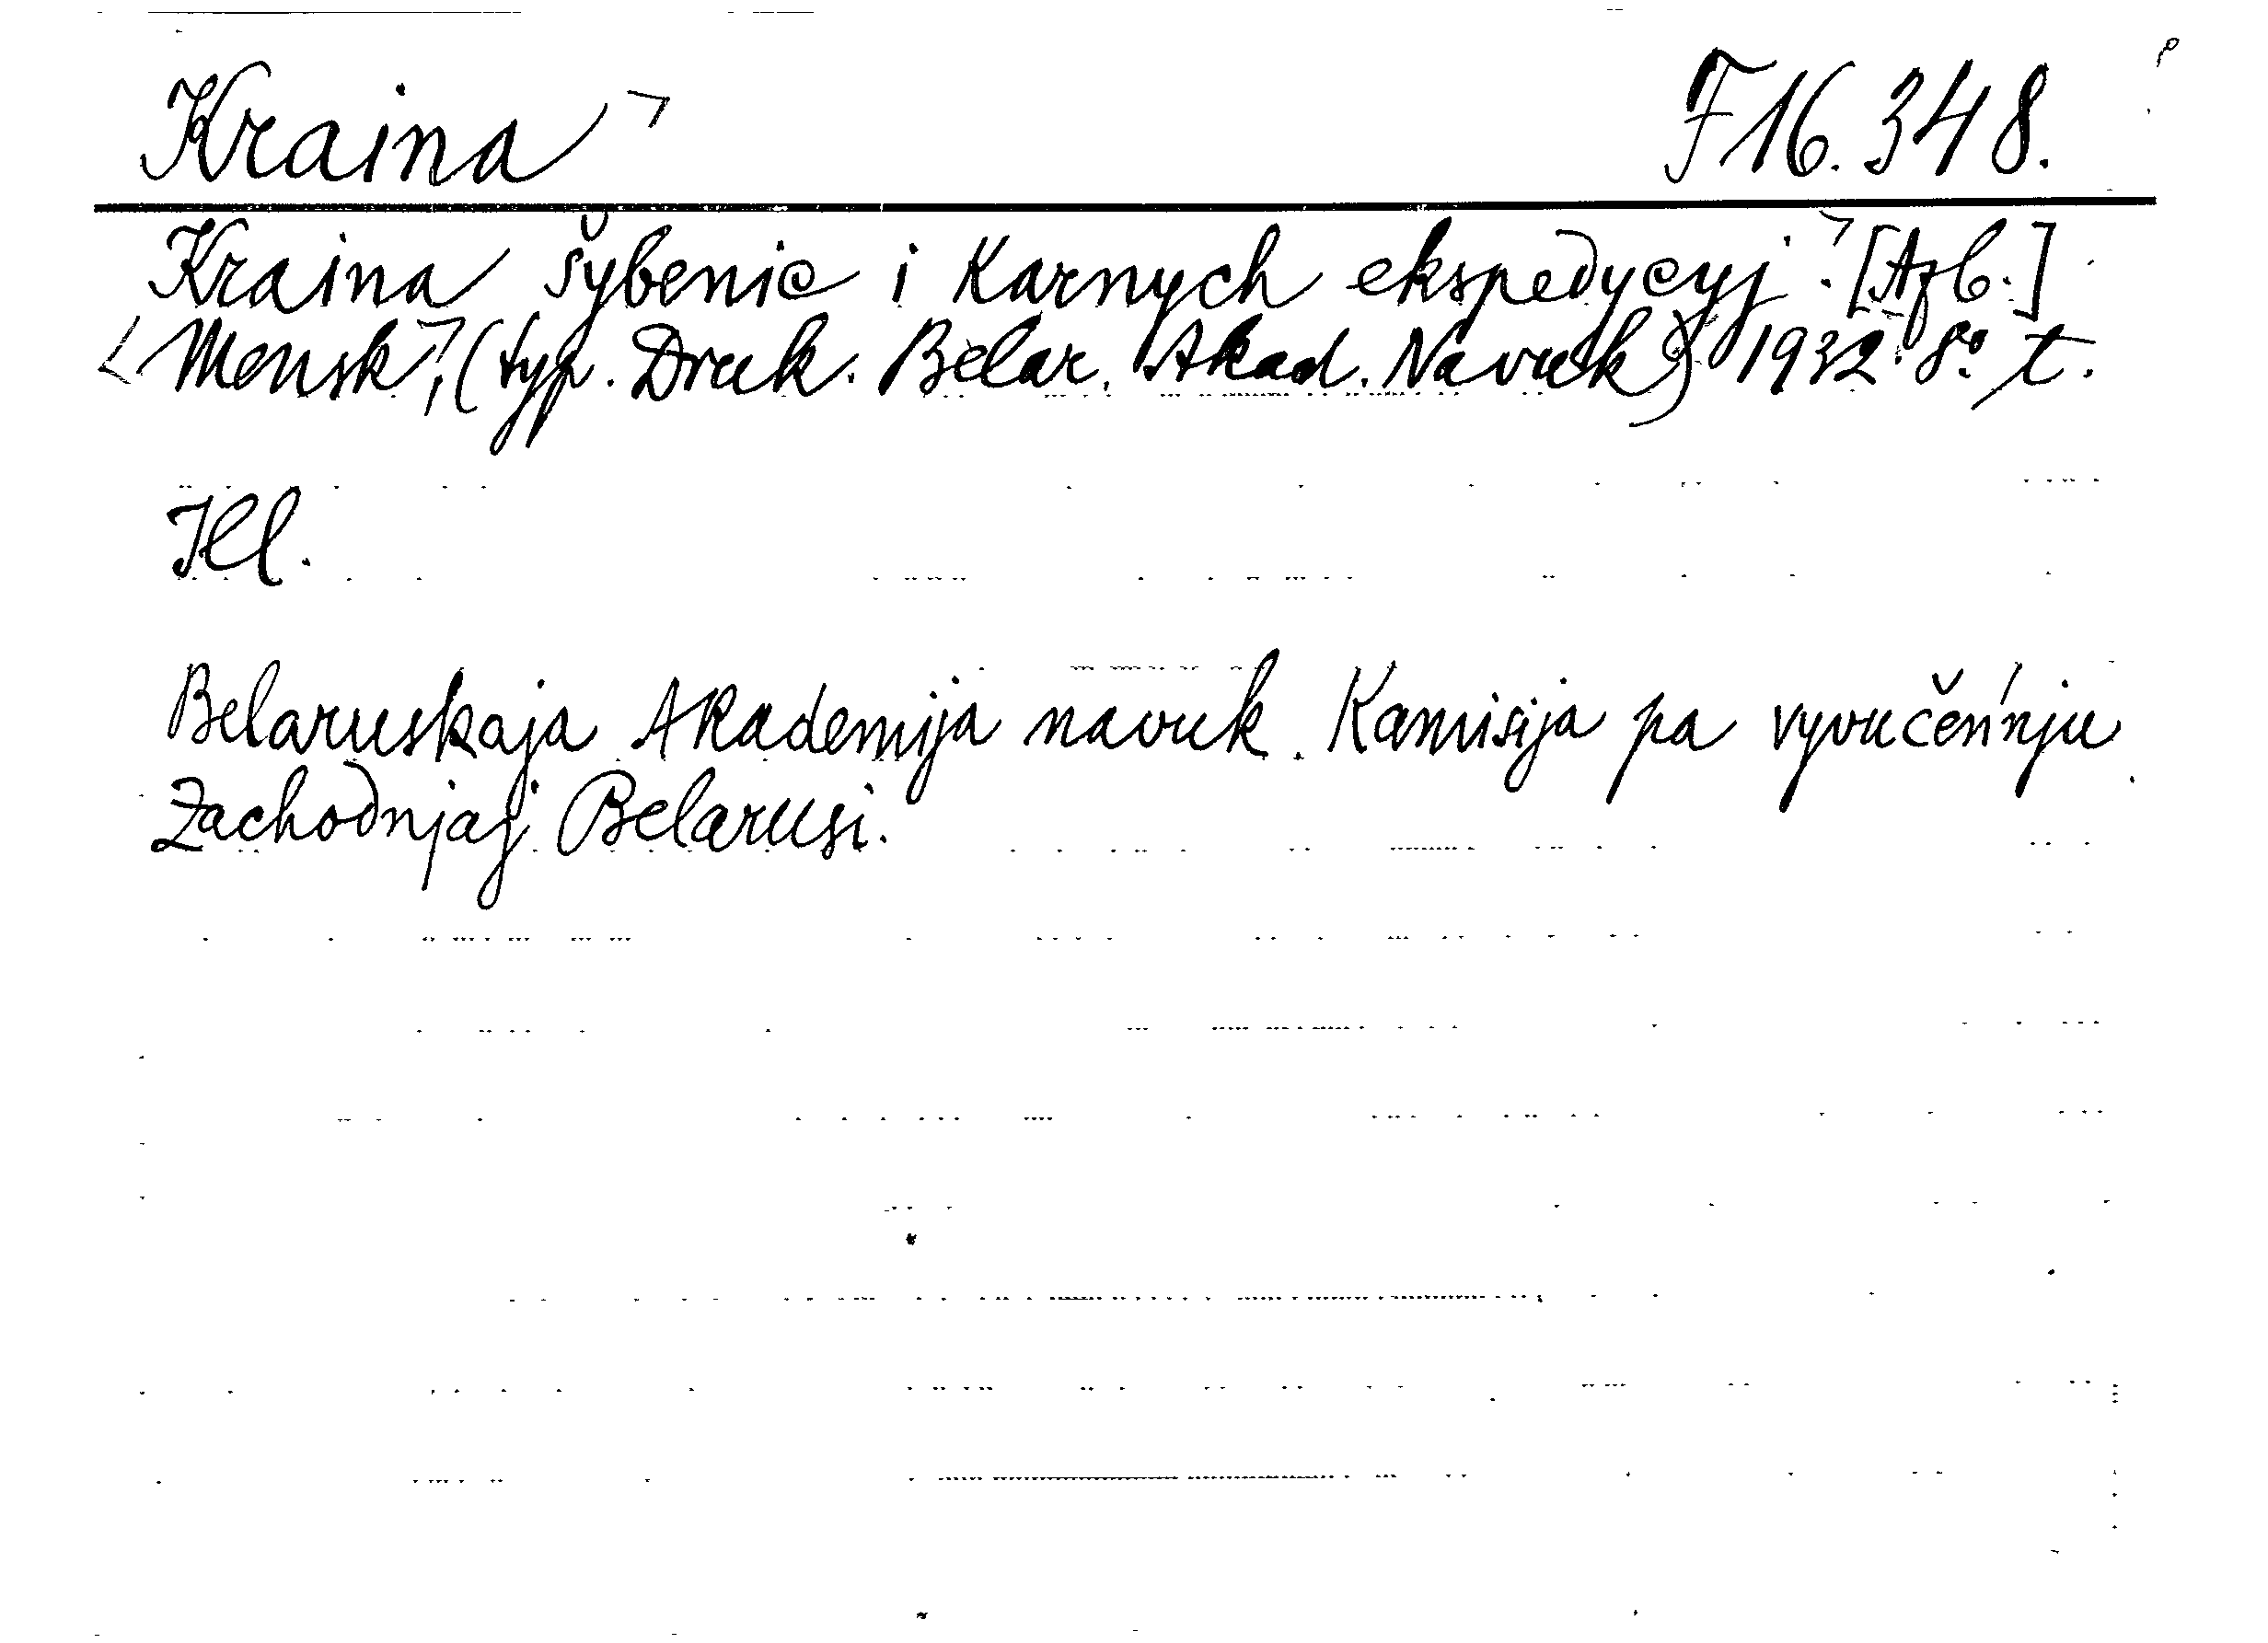 Kraina ⌝ F 16.348.
Kraina šybenic i karnych ekspedycyj.⌝ [Azb.]
<Mensk,⌝ (typ. Druk. Belar. Akad. Navuk) 1932. 8° t.
Ill.
Belaruskaja Akademija navuk. Kamisija pa vyvučeńnju
Zachodnjaj Belarusi.